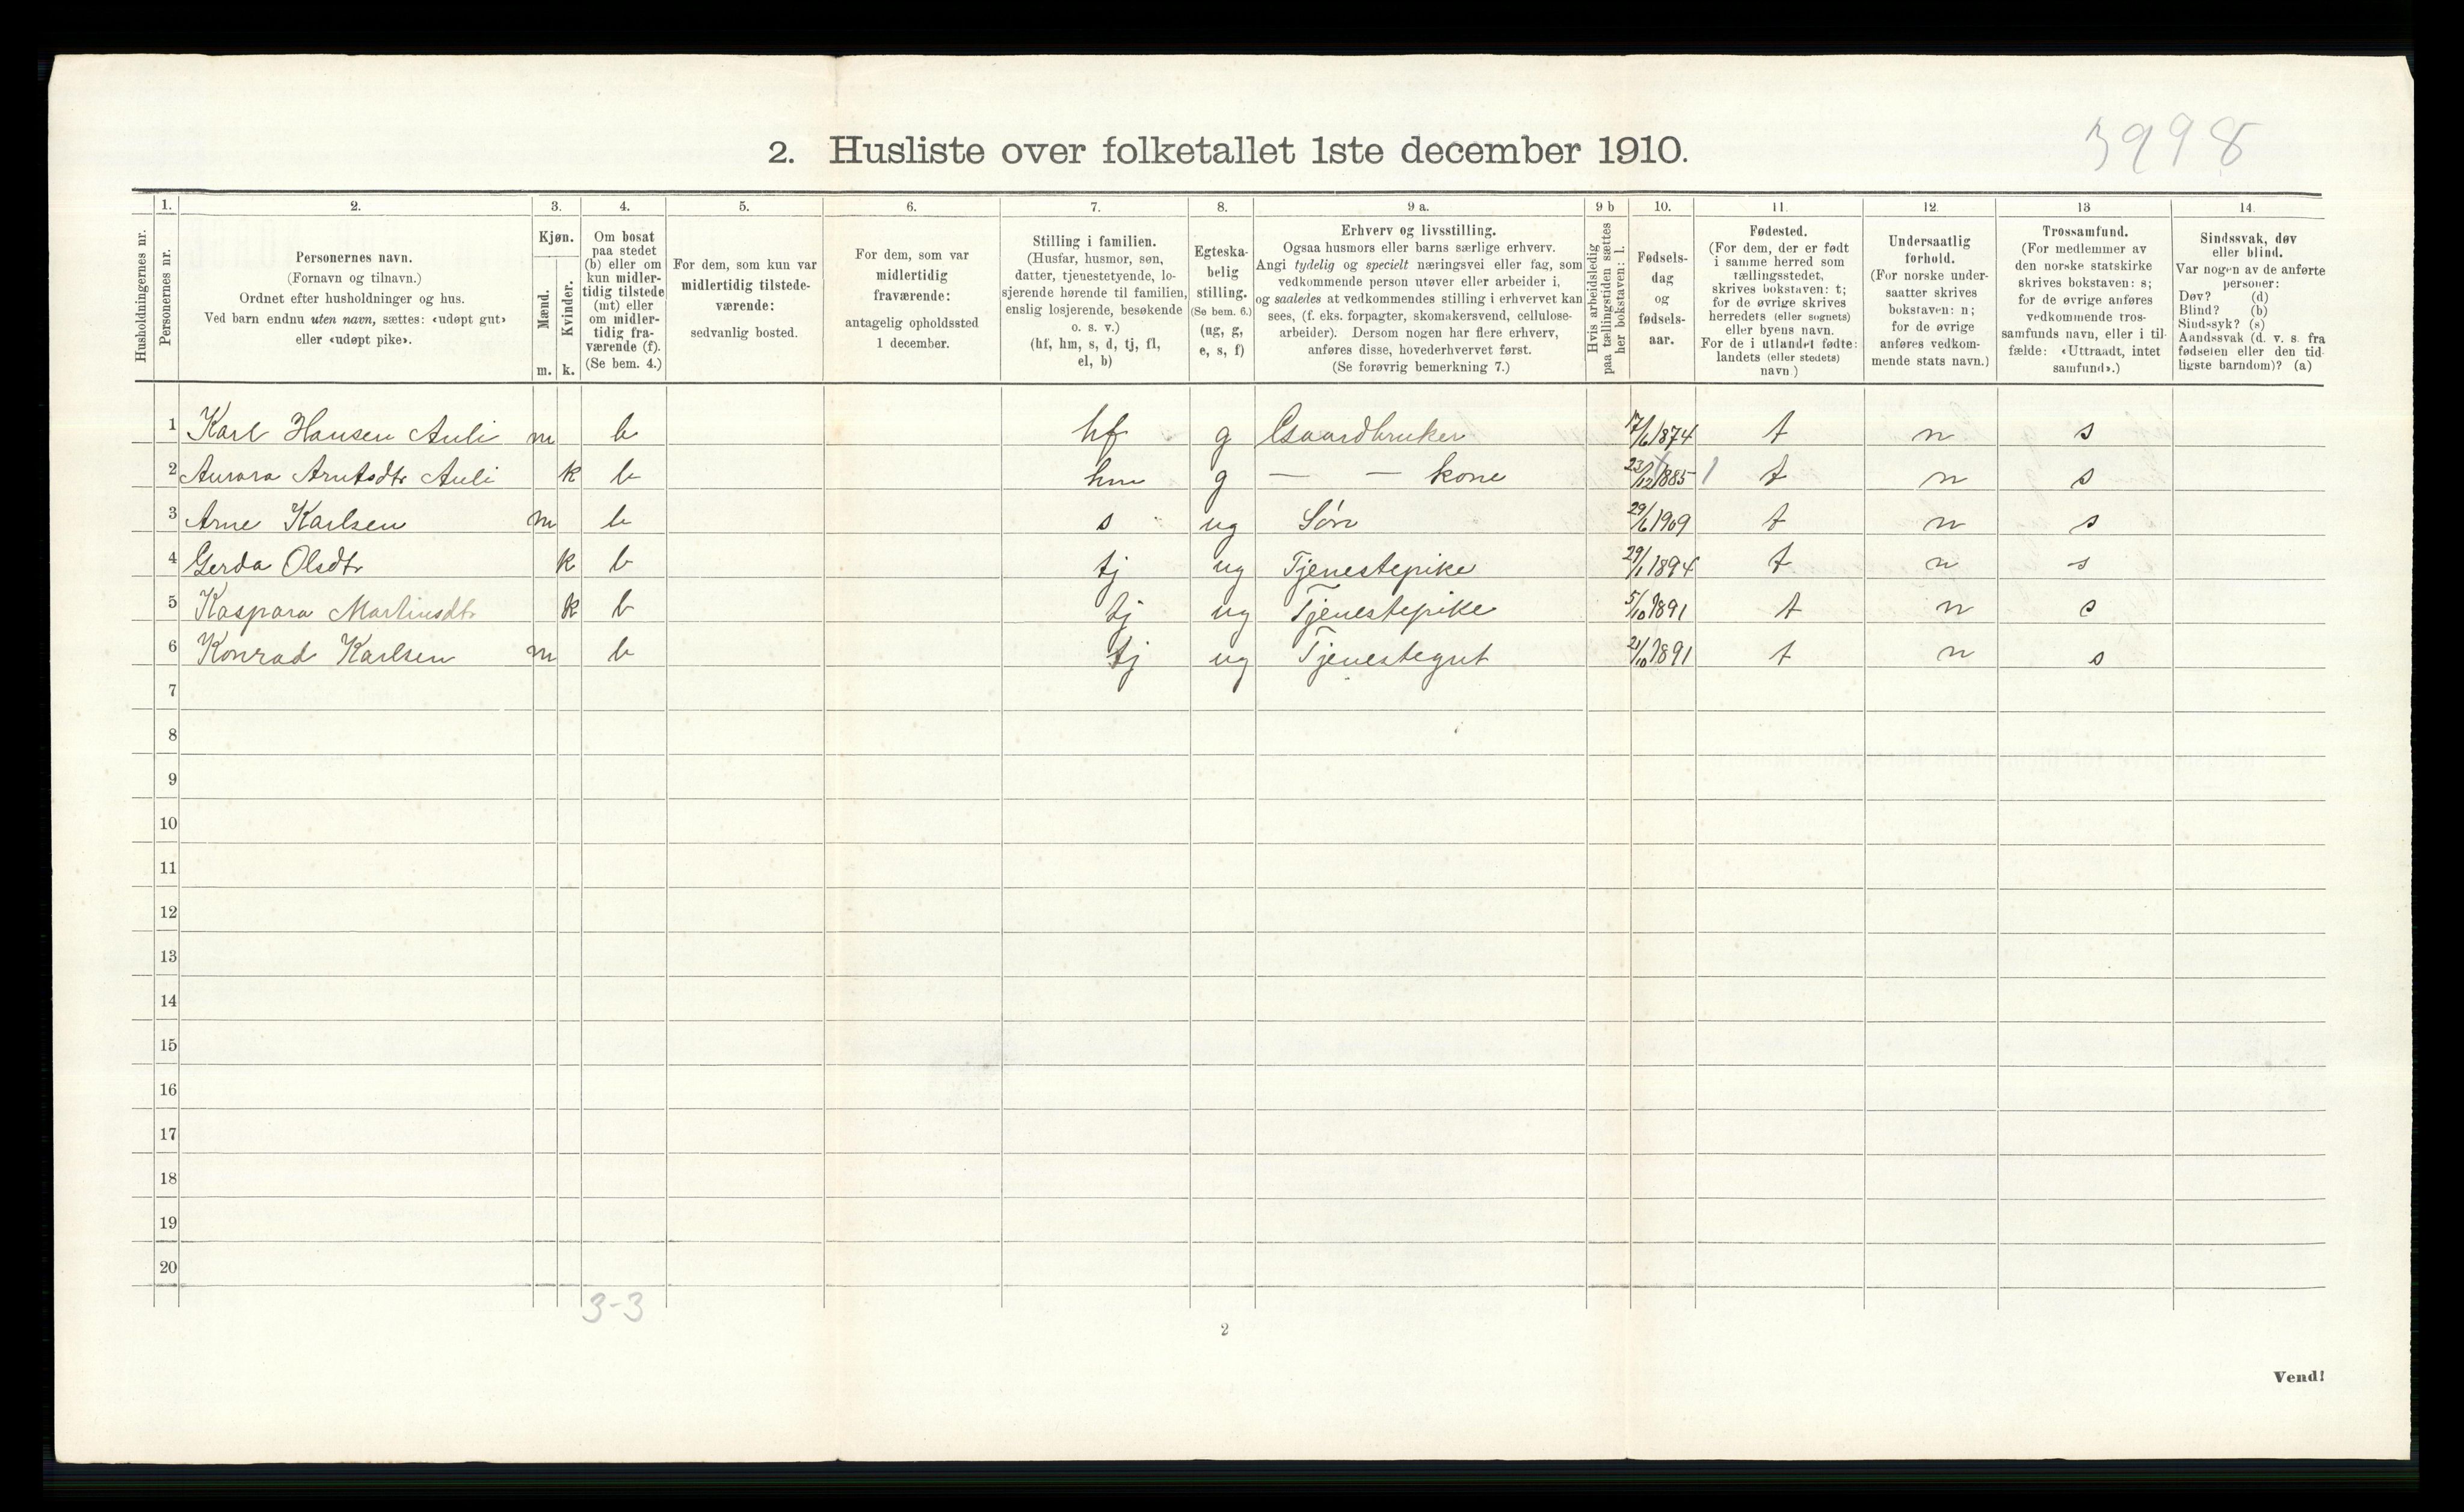 3998
2. Husliste over folketallet 1ste december 1910.
Husholdningernes nr.
1.
Personernes nr.
2.
Personernes navn.
(Fornavn og tilnavn.)
Ordnet efter husholdninger og hus.
Ved barn endnu uten navn, sættes: «udøpt gut»
eller «udøpt pike».
3.
Kjøn.
Mænd.
Kvinder.
m. k.
4.
Om bosat
paa stedet
(b) eller om
kun midler-
tidig tilstede
(mt) eller
om midler-
tidig fra-
værende (f).
(Se bem. 4.)
5.
For dem, som kun var
midlertidig tilstede-
værende:
sedvanlig bosted.
6.
For dem, som var
midlertidig
fraværende:
antagelig opholdssted
1 december.
7.
Stilling i familien.
(Husfar, husmor, søn,
datter, tjenestetyende, lo-
sjerende hørende til familien,
enslig losjerende, besøkende
o. s. v.)
(hf, hm, s, d, tj, fl,
el, b)
8.
Egteska-
belig
stilling.
(Se bem. 6.)
(ug, g,
e, s, f)
9 a.
Erhverv og livsstilling.
Ogsaa husmors eller barns særlige erhverv.
Angi tydelig og specielt næringsvei eller fag, som
vedkommende person utøver eller arbeider i,
og saaledes at vedkommendes stilling i erhvervet kan
sees, (f. eks. forpagter, skomakersvend, cellulose-
arbeider). Dersom nogen har flere erhverv,
anføres disse, hovederhvervet først.
(Se forøvrig bemerkning 7.)
9 b
Hvis arbeidsledig
paa tællingstiden sættes
her bokstaven: l.
10.
Fødsels-
dag
og
fødsels-
aar.
11.
Fødested.
(For dem, der er født
i samme herred som
tællingsstedet,
skrives bokstaven: t;
for de øvrige skrives
herredets (eller sognets)
eller byens navn.
For de i utlandet fødte:
landets (eller stedets)
navn)
12.
Undersaatlig
forhold.
(For norske under-
saatter skrives
bokstaven: n;
for de øvrige
anføres vedkom-
mende stats navn.)
13
Trossamfund.
(For medlemmer av
den norske statskirke
skrives bokstaven: s;
for de øvrige anføres
vedkommende tros-
samfunds navn, eller i til-
fælde: «Uttraadt, intet
samfund».)
14.
Sindssvak, døv
eller blind.
Var nogen av de anførte
personer:
Døv? (d)
Blind? (b)
Sindssyk? (s)
Aandssvak (d. v. s. fra
fødselen eller den tid-
ligste barndom)? (a)
1 Karl Hansen Auli m b hf g Gaardbruker 17/6 1874 t n s
2 Aurora Arntsdtr Auli k b hm g — — kone 23/12 1885 1 t n s
3 Arne Karlsen m b s ug Søn 29/6 1909 t n s
4 Gerda Olsdtr k b tj ug Tjenestepike 29/1 1894 t n s
5 Kaspara Martinsdtr k b tj ug Tjenestepike 5/10 1891 t n s
6 Konrad Karlsen m b tj ug Tjenestegut 21/10 1891 t n s
7
8
9
10
11
12
13
14
15
16
17
18
19
20
3-3
2
Vend!